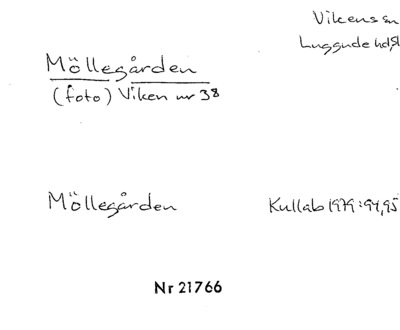 Vikens sn
Luggude hd, Sk
Möllegården
(foto) Viken nr 38
Möllegården
Kullab 1979:94,95
Nr 21766